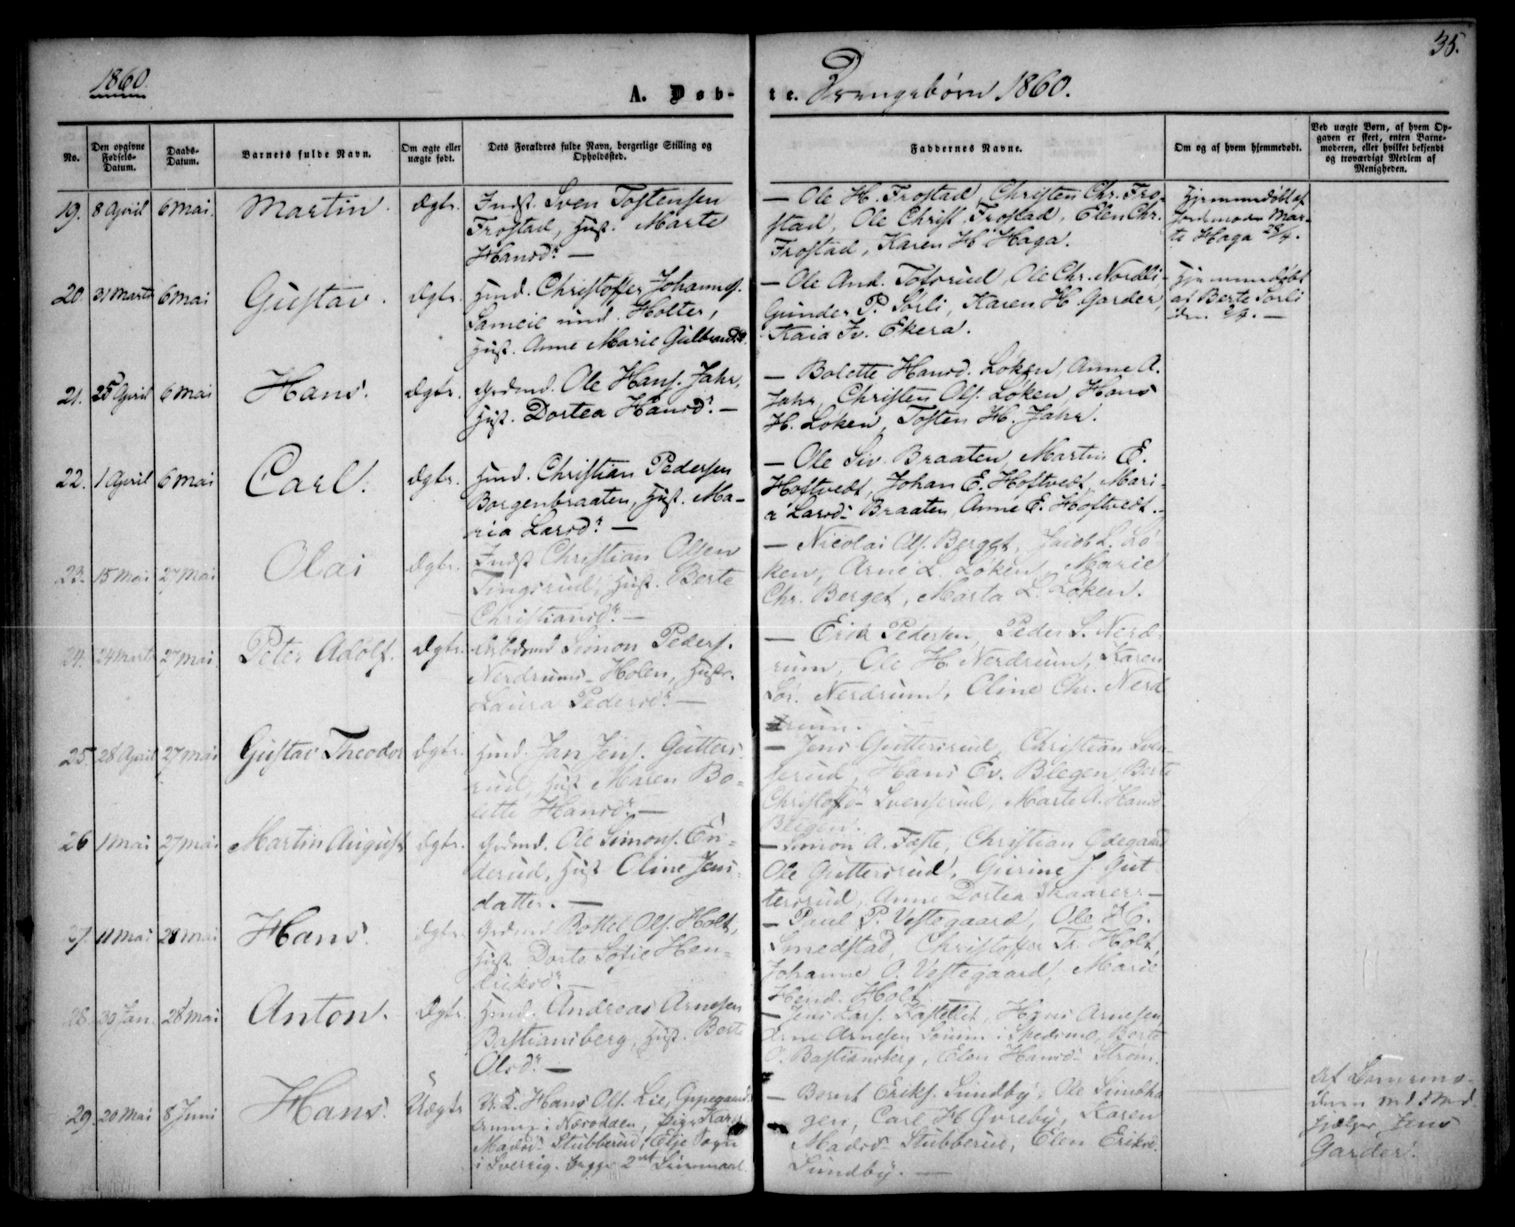 1860.
35.
A. Døb-
te. Drengebørn 1860.
No.
Den opgivne Fødsels-Datum.
Daabs-Datum.
Barnets fulde Navn.
Om ægte eller uægte født.
Dets Forældres fulde Navn, borgerlige Stilling og Opholdssted.
Faddernes Navne.
Om og af hvem hjemmedøbt.
Ved uægte Børn, af hvem Opgaven er skeet, enten Barnemoderen, eller hvilket bekjendt og troværdigt Medlem af Menigheden.
19. 8 April 6 Mai. Martin. Ægte. Indst. Sven Tostensen
Frostad, Hust. Marte
Hansd. —
— Ole H. Frostad, Christen Chr. Fro-
stad, Ole Christ. Frostad, Elen Chr.
Frostad, Karen H. Haga.
Hjemmedøbt af
Jordmoder Mar-
te Haga 28/4.
20. 31 Marts 6 Mai Gustav. Ægte. Huusd. Christoffer Johannes.
Holter,
Hust. Anne Marie Gulbrandsd.
— Ole And. Totsrud, Ole Chr. Nordli,
Gunder P. Sørli, Karen H. Garder,
Kaia Ekera.
Hjemmedøbt
af Berte Sørli
den
21. 25 April 6 Mai Hans. Ægte. Grdmd. Ole Hans. Jahr,
Hust. Dortea Hansd. —
— Bolette Hansd. Løken, Anne A.
Jahr, Christen Ols. Løken, Hans
H. Løken, Tosten H. Jahr.
22. 1 April 6 Mai Carl. Ægte. Huusd. Christian Pedersen
Borgenbraaten, Hust. Ma-
ria Larsd. —
— Ole Siv. Braaten, Martin E.
Hoftvedt, Johan E. Hoftvedt, Mari-
a Larsd. Braaten, Anne E. Hoftvedt. —
23. 15 Mai 27 Mai Olai Ægte. Indst. Christian Olsen
Tingsrud, Hust. Berte
Christiansd. —
— Nicolai Ols. Berget, Jacob L. Lø-
ken, Arne L. Løken, Marie
Chr. Berget, Marta L. Løken.
24. 24 Marts 27 Mai Peter Adolf. Ægte. Arbdmd Simon Peders.
Nerdrums-Holen, Hustr.
Laura Pedersd. —
— Erik Pedersen, Peder S. Nerd-
rum, Ole H. Nerdrum, Karen
Nerdrum, Oline Chr. Nerd
drum.
25. 28 April 27 Mai Gustav Theodor Ægte. Huusd. Jan Jens. Gutters-
rud, Hust. Maren Bo-
lette Hansd. —
— Jens Guttersrud, Christian Sven-
serud, Hans Ev. Blegen, Berte
Christoffd. Svenserud, Marte A. Hansd.
Blegen.
26 1 Mai 27 Mai Martin August Ægte. Grdmd. Ole Simons. En-
derud, Hust Oline Jens-
datter. —
— Simon A. Faste, Christian Ødegaard
Ole Guttersrud, Gurine J. Gut-
tersrud, Anne Dortea Skaarer. —
27 11 Mai 28 Mai Hans. Ægte. Grdmd Bottel Ols. Holt,
Hust. Dorte Sofie Hen-
driksd.
— Poul P. Vestegaard, Ole H.
Smedstad, Christoffer Tr. Holt,
Johanne O. Vestegaard, Marie
Hend. Holt.
28. 30 Jan. 28 Mai Anton. Ægte. Huusd. Andreas Arnesen
Bastiansberg, Hust. Berte
Olsd. —
— Jens Lars. Hans Arnesen
Arne Arnesen Berte
O. Bastiansberg, Elen Hansd. Strøm.
29. 20 Mai 8 Juni Hans. Uægte U. K. Hans Ols. Lie,
Pige Kari
Madsd. Stubberud,
i Sverrig. begge 2det Leiermaal.
— Bernt Eriks. Sundby, Ole Sundha-
gen, Carl H. Karen
Madsd. Stubberud, Elen Eriksd.
Sundby. —
Jens
Garder.